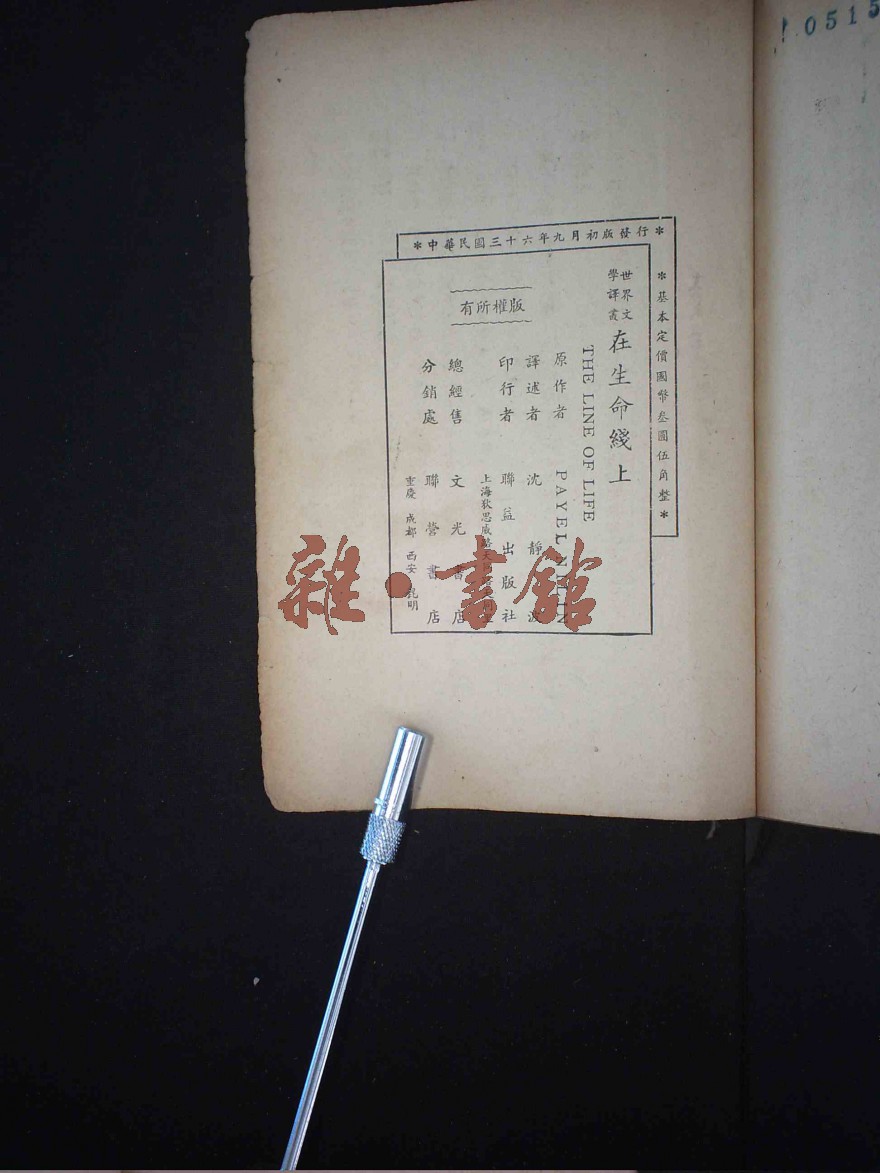 0515
*中華民國三十六年九月初版發行*
*基本定價國幣叁圓伍角整*
世界文
學譯叢
在生命綫上
THE LINE OF LIFE
原作者
譯述者 沈靜波
印行者 聯益出版社
上海狄思威
總經售 文光書店
分銷處 聯營書店
重慶 成都 西安 昆明
有所權版
雜·書館